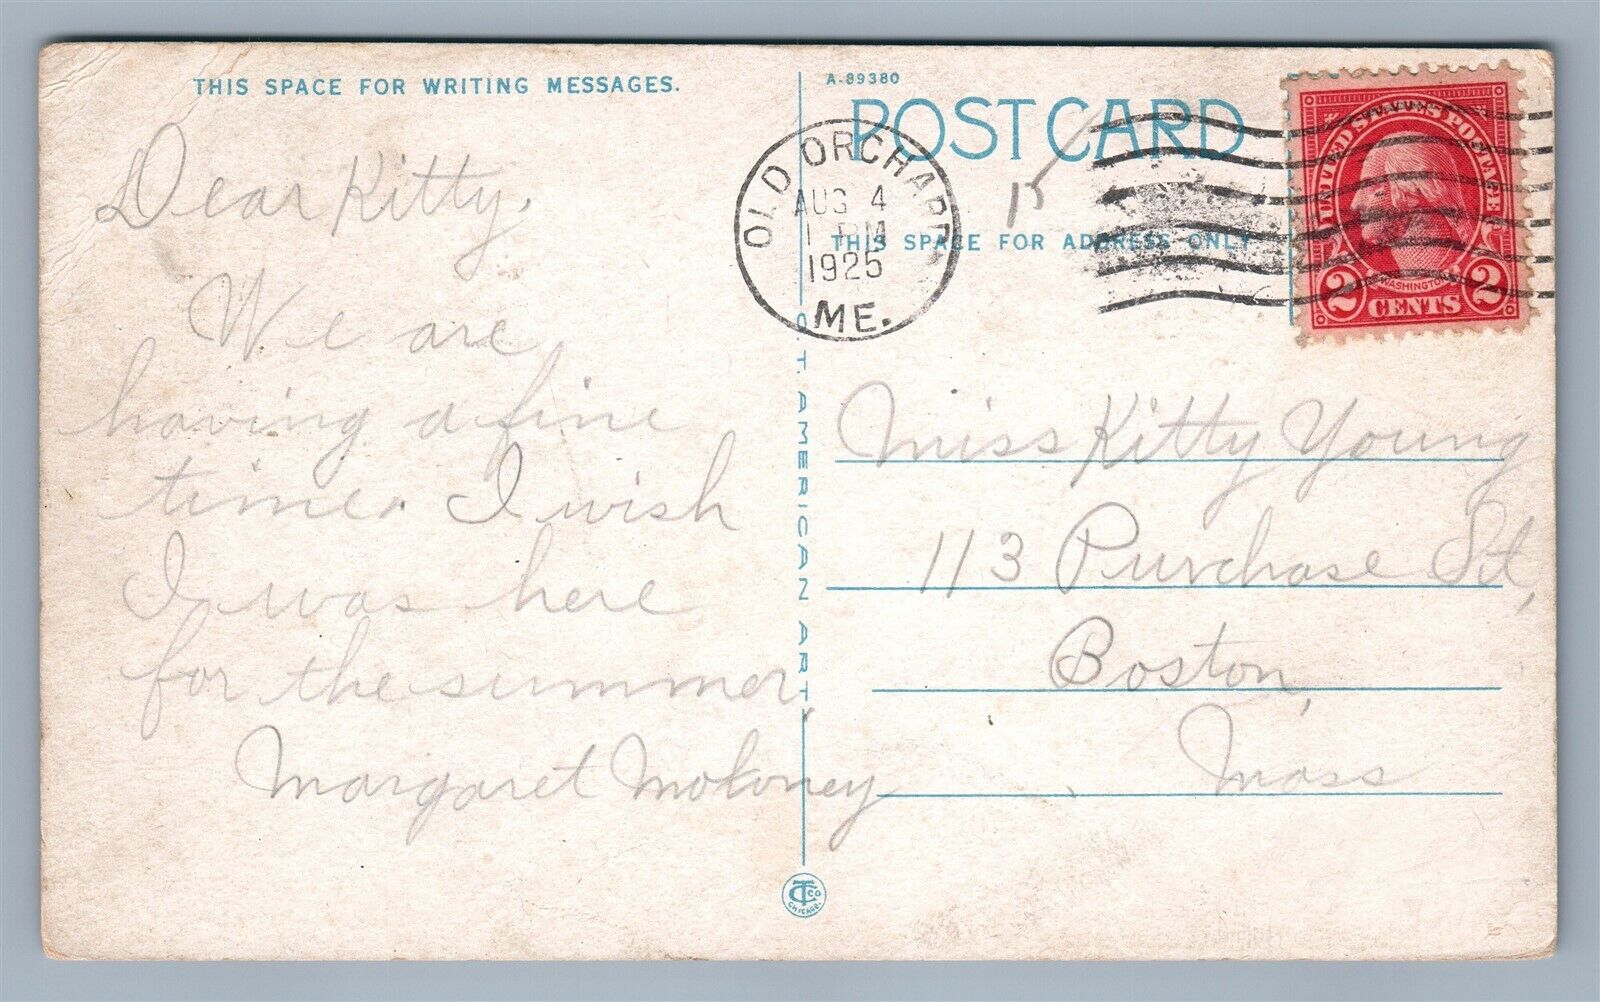 THIS SPACE FOR WRITING MESSAGES.
Dear Kitty,
We are
having a fine
time. I wish
I was here
for the summer,
Margaret Moloney
A-89380
POST CARD
15
THIS SPACE FOR ADDRESS ONLY
OLD ORCHARD
AUG 4
1 PM
1925
ME.
UNITED STATES POSTAGE
WASHINGTON
2 CENTS 2
C. T. AMERICAN ART
Miss Kitty Young
113 Purchase St,
Boston,
Mass
CT CO
CHICAGO.